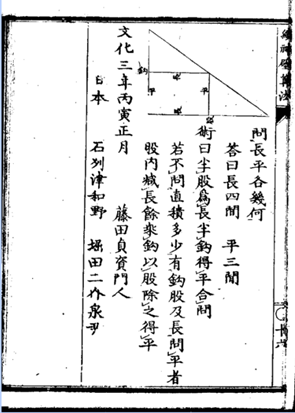 問長平各幾何
答曰長四間 平三間
術曰半股爲長半鈎得平合問
若不問直積多少有鈎股及長問平者
股内減長餘乘鈎以股除之得平
文化三年丙寅正月 藤田貞資門人
日本 石州津和野 堀田二作泉尹
鈎
平
平